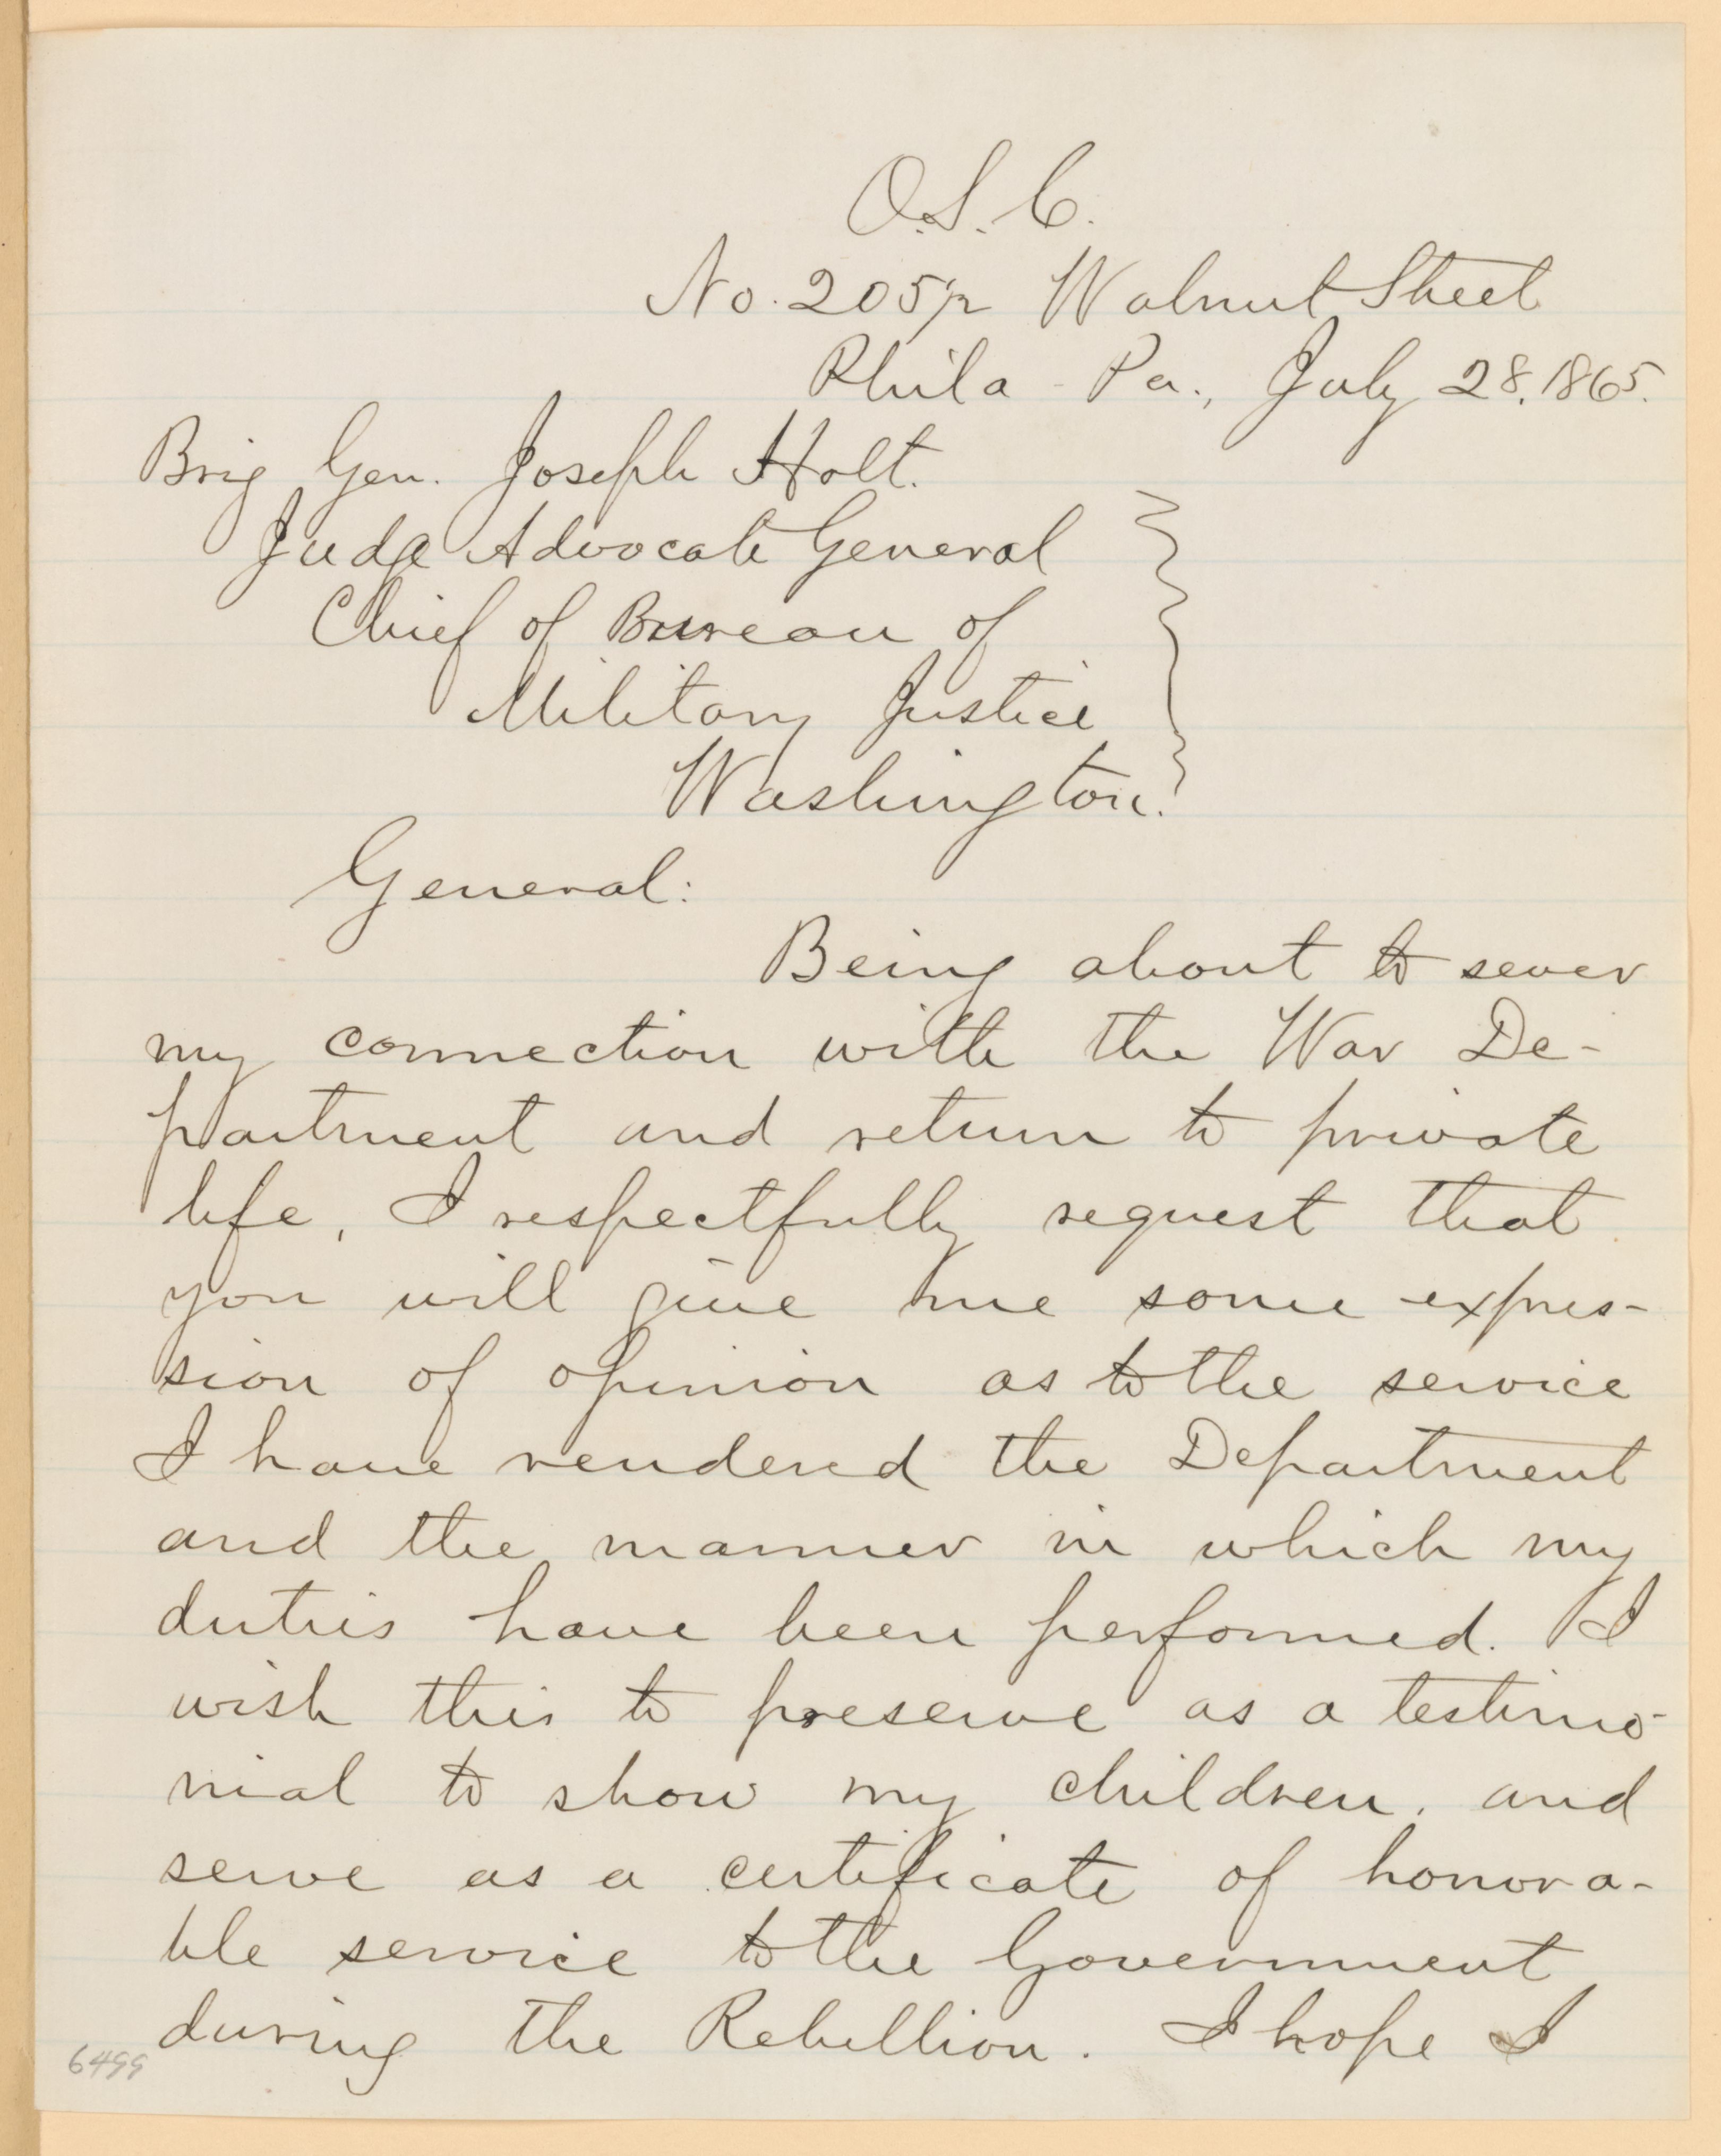 O.S.C.
No. 205½ Walnut Street
Phila - Pa., July 28, 1865.
Brig Gen. Joseph Holt.
Judge Advocate General
Chief of Bureau of
Military Justice
Washington.
General:
Being about to sever
my connection with the War De-
partment and return to private
life, I respectfully request that
you will give me some expres-
sion of opinion as to the service
I have rendered the Department
and the manner in which my
duties have been performed. I
wish this to preserve as a testimo-
nial to show my children, and
serve as a certificate of honora-
ble service to the Government
during the Rebellion. I hope I
6499